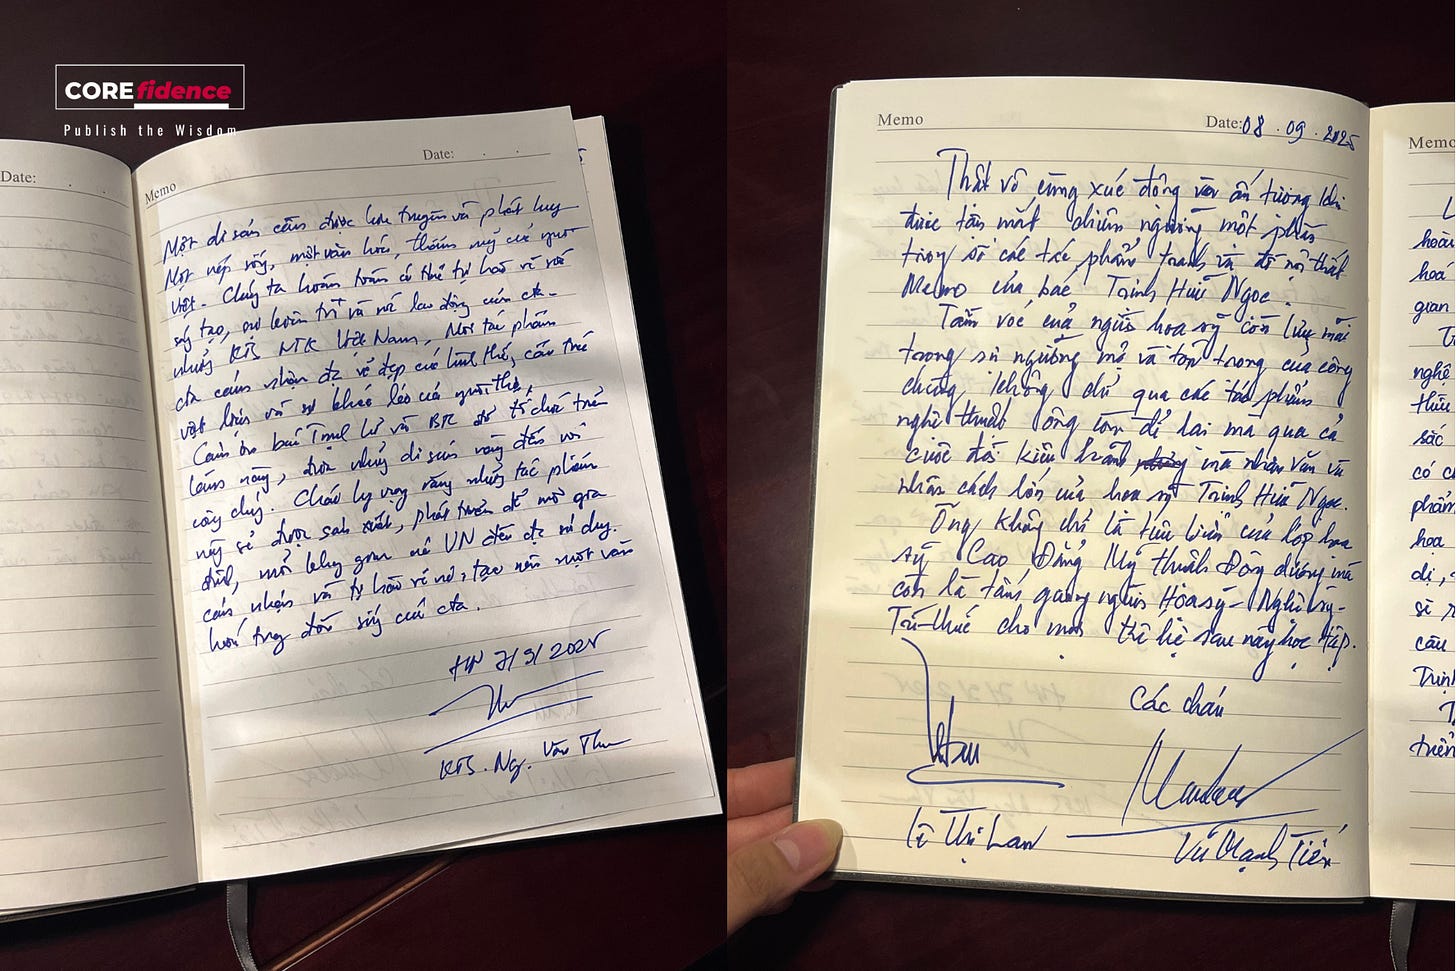 COREfidence
Publish the Wisdom
Date:
Memo
Date: . .
Một di sản cần được lưu truyền và phát huy
Một nếp sống, một văn hóa, thẩm mỹ của người
Việt. Chúng ta hoàn toàn có thể tự hào về
sáng tạo, và lao động của cta.
những KTS NTK Việt Nam, Mỗi tác phẩm
cta cảm nhận đc vẻ đẹp của hình thể, cấu trúc
vật liệu và sự khéo léo của người thợ.
Cảm ơn bác và BTC đã tổ chức triển
lãm này, đưa những di sản này đến với
công chúng. Cháu hy vọng rằng những tác phẩm
này sẽ được sản xuất, phát triển để mỗi gia
đình, mỗi không gian nhà VN đều đc sử dụng.
cảm nhận và tự hào về nó, tạo nên một văn
hoá trong đời sống của cta.
HN 7/9/2025
KTS. Ng. Văn Thu
Memo
Date: 08 . 09 . 2025
Thật vô cùng xúc động và ấn tượng khi
được tận mắt chiêm ngưỡng một phần
trong số các tác phẩm tranh và đồ nội thất
Memo của bác Trịnh Hữu Ngọc.
Tầm vóc của người hoạ sỹ còn lưu mãi
trong sự ngưỡng mộ và tôn trọng của công
chúng không chỉ qua các tác phẩm
nghệ thuật ông còn để lại mà qua cả
cuộc đời mà nhân văn và
nhân cách lớn của hoạ sỹ Trịnh Hữu Ngọc.
Ông không chỉ là của lớp hoạ
sỹ Cao Đẳng Mỹ thuật Đông dương mà
còn là tấm gương người Hoạ sỹ - Nghệ sỹ -
Trí thức cho mọi thế hệ sau này học tập.
Các cháu
Lê Thị Lan
Vũ Mạnh Tiến
Memo
hoá
gian
nghệ
sắc
có
phẩm
hoạ
dị,
câu
Trịnh